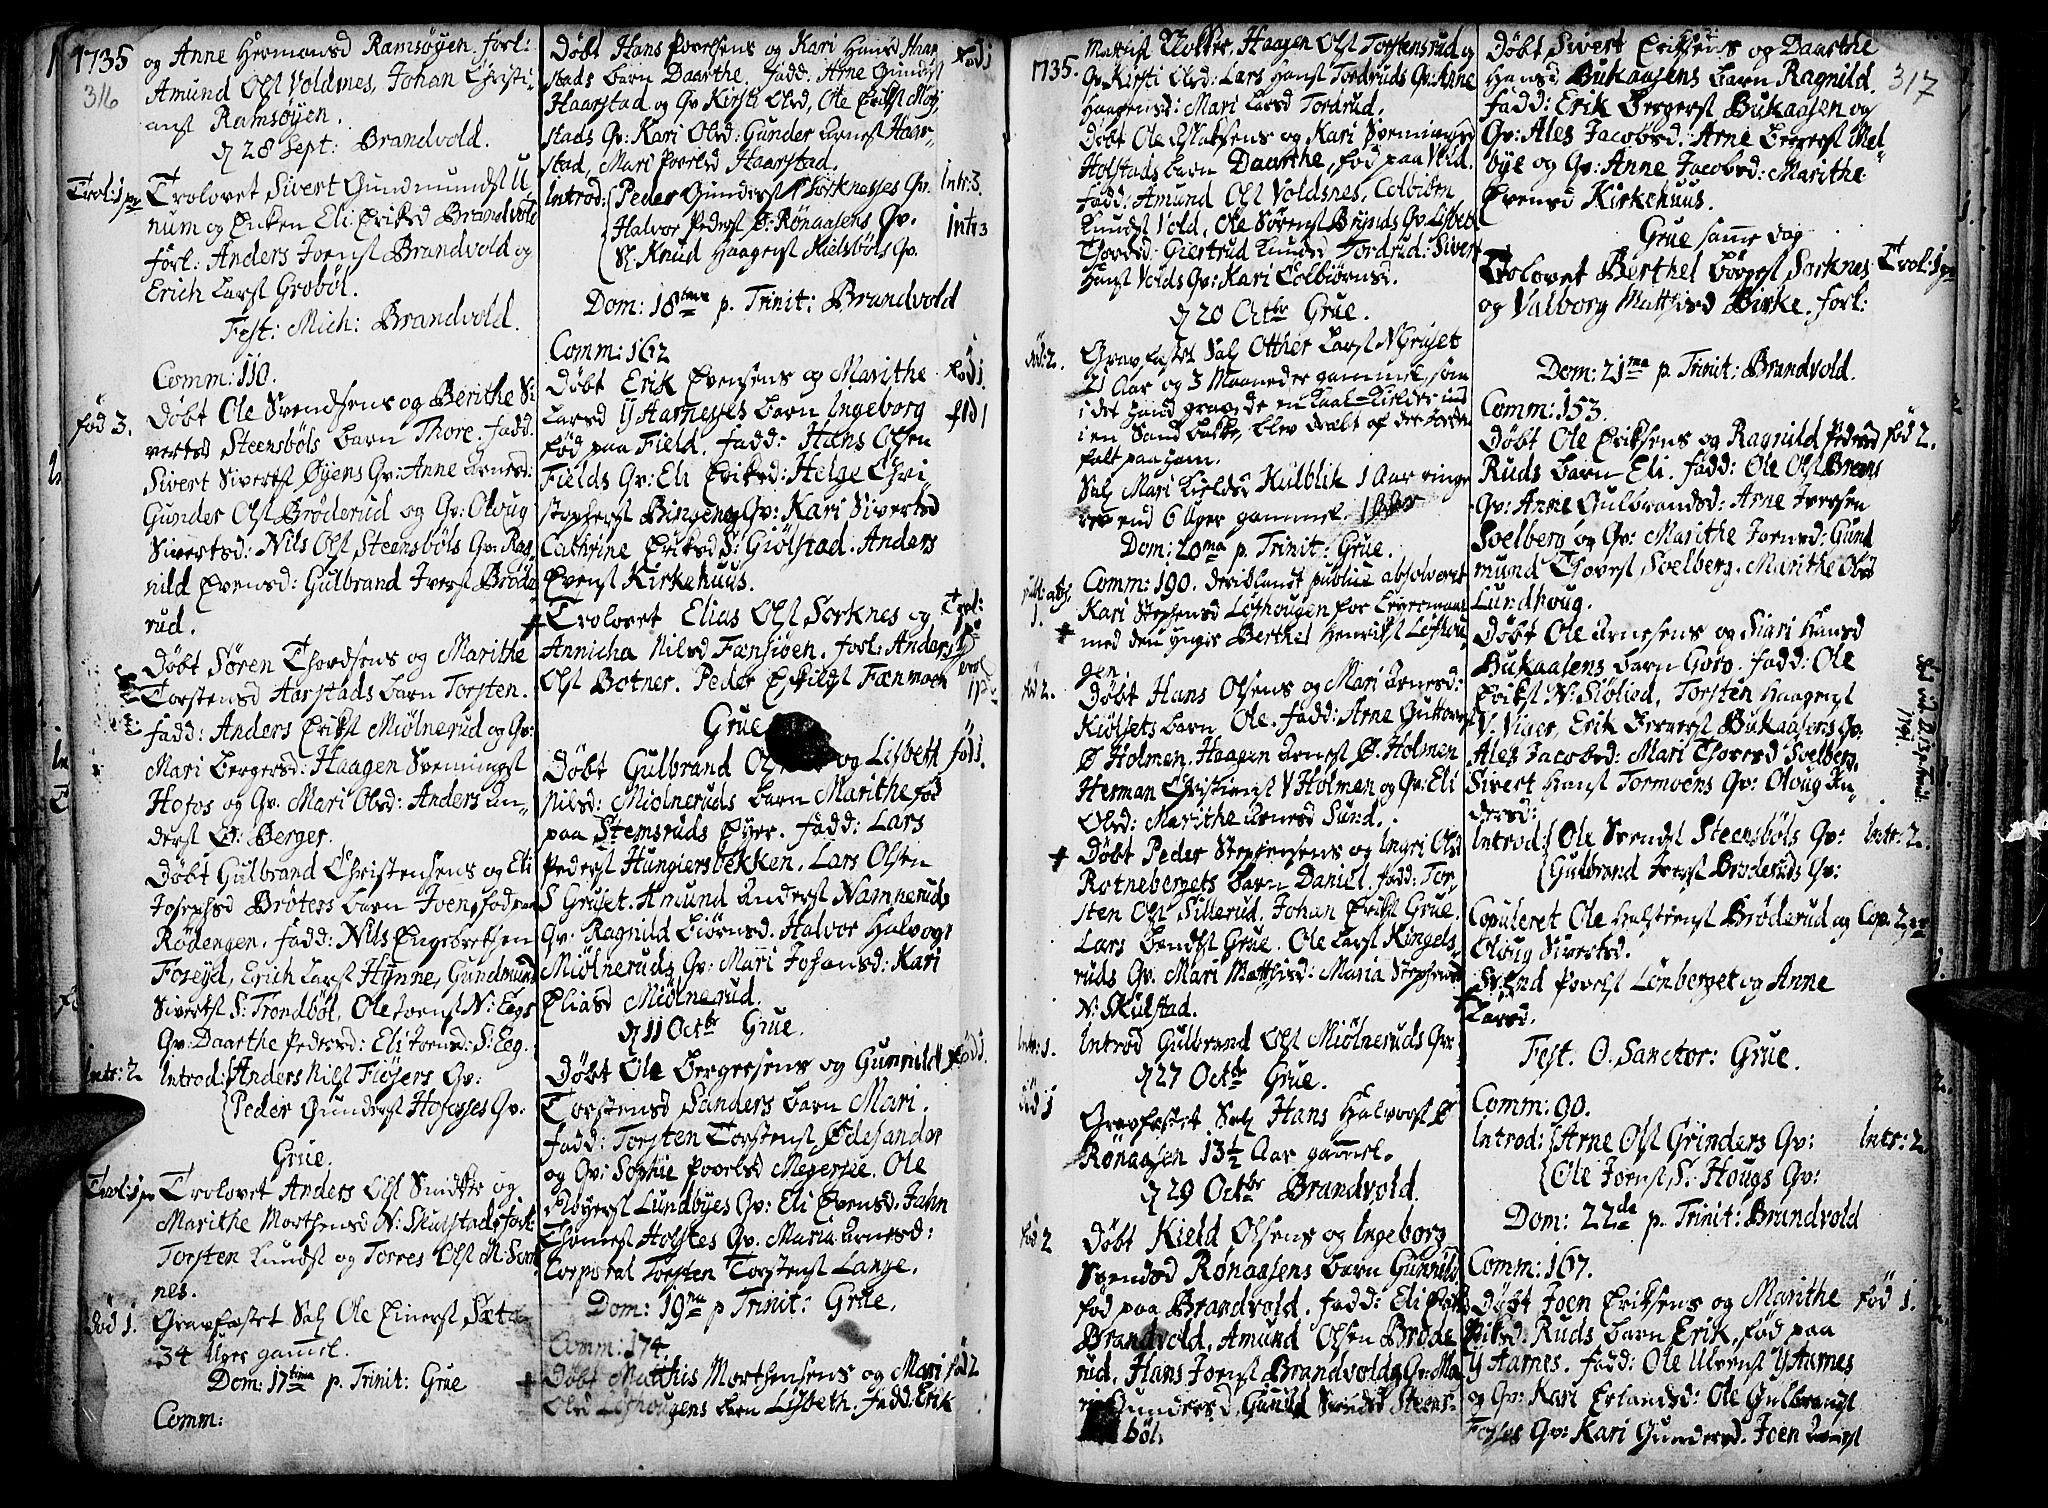 1735
316
og Anne Hermansd Ramsøyen. forl:
Amund Olss Voldnes, Johan Christi-
anss Ramsøyen.
d 28 Sept: Brandvold.
Trol: 1 pr
Trolovet Sivert Gundmundss U
num og Enken Eli Eriksd Brandvold
forl: Anders Joenss Brandvold og
Erich Larss Grobøl.
Fest: Mich: Brandvold.
Comm: 110.
fød 3.
Døbt Ole Svendsens og Berithe Si
vertsd Steensbøls barn Thore. fadd:
Sivert Sivertss Øyens Qv: Anne Arnesd:
Gunder Olss Brøderud og Qv: Oloug
Sivertsd: Nils Olss Steensbøls Qv: Rag
nild Evensd: Gulbrand Iverss Brøde
rud.
Døbt Søren Thordsens og Marithe
Torstensd Aarstads barn Torsten.
fadd: Anders Erikss Miølnerud og Qv:
Mari Bergersd: Haagen Svenningss
Hofos og Qv. Mari Olsd: Anders An-
derss Ø: Berger.
Døbt Gulbrand Christensens og Eli
Josephsd Brøters barn Joen, fød paa
Rødengen. fadd: Nils Engebretsen
Foseyd, Erich Larss Hynne, Gundmund
Sivertss S: Trondbøl, Ole Joenss N: Eegs
Qv: Daarthe Pedersd: Eli Joensd: S: Eeg.
Intr: 2
Introd: Anders Nilss Fløyers Qv:
Peder Gunderss Hofosses Qv:
Grue.
Trol: 1 pr
Trolovet Anders Olss Smidtte og
Marithe Morthensd N: Skulstad. forl:
Torsten Knudss og Torres Olss N: Sork
nes.
død 1.
Gravfæstet Sal Ole Einerss Sæta
34 Uger gaml.
Dom: 17tima p. Trinit: Grue
Comm:
Døbt Hans Povelsens og Kari Hansd Haar
stads barn Daarthe. fadd: Arne Gundss
Haarstad og Qv Kirsti Olsd, Ole Erikss Moy
stads Qv: Kari Olsd: Gunder Arness Haar-
stad, Mari Povelsd Haarstad.
fød 1
Introd: Peder Gunderss Sorknesses Qv.
Halvor Pederss Ø: Rønaasens Qv.
S: Knud Haagenss Kielsbøls Qv.
Intr: 3.
Intr: 3
Dom: 18tima p. Trinit: Brandvold
Comm: 162
Døbt Erik Evensens og Marithe
Larsd Y Aarnesses barn Ingeborg
fød paa Field. fadd: Hans Olsen
Fields Qv: Eli Eriksd: Helge Chri
stopherss Bingen og Qv: Kari Sivertsd
Cathrine Eriksd S: Giølstad. Anders
Evenss Kirkehuus.
fød 1.
fød 1
Trolovet Elias Olss Sorknes og
Annicha Nilsd Fænsiøen. forl: Anders
Olss Botner. Peder Eskilss Fænmoen
Trol:
Grue
Døbt Gulbrand Ols og Lisbeth
Nilsd: Miølneruds barn Marithe fød
paa Stemsruds Eyer. fadd: Lars
Pederss Hungiersbekken, Lars Olsen
S Gruset. Amund Anderss Namneruds
Qv. Ragnild Biørnsd. Halvor Halvors
Miølneruds Qv: Mari Johansd: Kari
Eliasd Miølnerud.
fød 1.
d 11 Octbr Grue.
Døbt Ole Bergersens og Gunnild
Torstensd Sanders barn Mari.
fadd: Torsten Torstenss Ødesander
og Qv: Sophie Povelsd Meyersee. Ole
Fløyerss Lundbyes Qv: Eli Evensd. Jahn
Thomess Holstes Qv. Maria Arnesd:
Corporal Torsten Torstenss Lange.
fød 1.
Dom: 19na p Trinit: Grue.
Comm: 174
Døbt Matthis Morthensens og Mari
Olsd Løfhougens barn Lisbeth. fadd: Erik
fød 2
1735.
Matiss Rotter, Haagen Olss Torstensrud og
Qv. Kirsti Olsd: Lars Hanss Tordruds Qv: Anne
Haagensd: Mari Larsd Tordrud.
Døbt Ole Olsens og Kari Svenningsd
Holstads barn Daarthe, fød paa Vold.
fadd: Amund Olss Voldsnes, Colbiørn
Knudss Vold, Ole Sørenss Brynds Qv: Lisbeth
Thordsd: Giertrud Knudsd Tordrud: Sivert
Hanss Volds Qv: Kari Colbiørnsd.
d 20 Octbr Grue.
død: 2.
Gravfæstet Sal Otther Larss N Gruset
21 Aar og 3 Maaneder gammel, som
i det hand gravede en Kaal-Kielder ud
i en Sand bakke, blev qvalt af der Jorden
falt paa ham.
Sal Mari Kieldsd Kulblik 1 Aar ringe
rer end 6 Uger gammel.
Dom: 20ma p. Trinit: Grue.
publ: abs.
1.
Comm: 190. deriblandt publice absolveret
Kari Stephensd Løfhougen for Leiermaal
med den yngre Berthel Henrikss Løfhou
gen.
fød 2.
Døbt Hans Olsens og Mari Arnesd:
Kiølsets barn Ole. fadd: Arne Guttormss
Ø Holmen, Haagen Arness Ø: Holmen
Herman Christienss V Holmen og Qv: Eli
Olsd: Marithe Arnesd Sund.
Døbt Peder Stephensens og Ingri Olsd
Rotnebergets barn Daniel. fadd: Tor
sten Olss Sillerud. Johan Erikss Grue.
Lars Bendss Grue. Ole Larss Kingels-
ruds Qv. Mari Matthisd: Maria Stephensd
N: Skulstad.
Intr: 1.
Introd Gulbrand Olss Miølneruds Qv:
d 27 Octbr Grue.
død 1
Gravfæstet Sal Hans Halvorss Ø
Rønaasen 13½ Aar gammel.
d 29 Octbr Brandvold.
fød 2
Døbt Kield Olsens og Ingeborg
Svendsd Rønaasens barn Gunnild
fød paa Brandvold. fadd: Eli Eriksd
Brandvold, Amund Olsen Brøde
rud, Hans Joenss Brandvold og Qv: Ma
ri Gundersd, Gunild Svendsd Steens-
bøl.
317
Døbt Sivert Eriksens og Daarthe
Hansd Bukaasens barn Ragnild.
fadd: Erik Bergerss Bukaasen og
Qv: Ales Jacobsd. Arne Bergerss Mel-
bye og Qv: Anne Jacobsd: Marithe
Evensd Kirkehuus.
Grue samme dag
Trolovet Berthel Børgess Sorknes
og Valborg Matthisd Birke. forl:
Trol: 1 pr
Dom: 21ma p. Trinit: Brandvold.
Comm: 153.
Døbt Ole Eriksens og Ragnild Pedersd
Ruds barn Eli. fadd: Ole Olss Brems
Qv: Anne Gulbrandsd: Arne Iversen
Soelberg og Qv: Marithe Joensd: Gund
mund Thoress Soelberg. Marithe Olsd
Lundhoug.
fød 2.
Døbt Ole Arnesens og Mari Hansd
Bukaasens barn Goro. fadd: Ole
Erikss N: Siølied, Torsten Haagenss
V. Viger, Erik Bergerss Bukaasens Qv:
Ales Jacobsd: Mari Thoresd Soelberg.
Sivert Hanss Tormoens Qv: Oloug An-
dersd:
Introd: Ole Svendss Steensbøls Qv:
Gulbrand Iverss Brøderuds Qv:
Intr: 2.
Copuleret Ole Halstenss Brøderud og
Oloug Sivertsd.
Svend Povelss Lønberget og Anne
Larsd.
Cop. 2 pr
Fest. O. Sanctor: Grue.
Comm: 90.
Introd: Arne Olss Grinders Qv:
Ole Joenss S. Hougs Qv:
Intr: 2
Dom: 22da p. Trinit: Brandvold
Comm: 167.
Døbt Joen Eriksens og Marithe
Nilsd: Ruds barn Erik, fød paa
Y Aarnes. fadd: Ole Ulvenss Y Aarnes
og Qv: Kari Erlandsd: Ole Gulbrandss
Fosses Qv: Kari Gundersd. Joen Larss
fød 1.